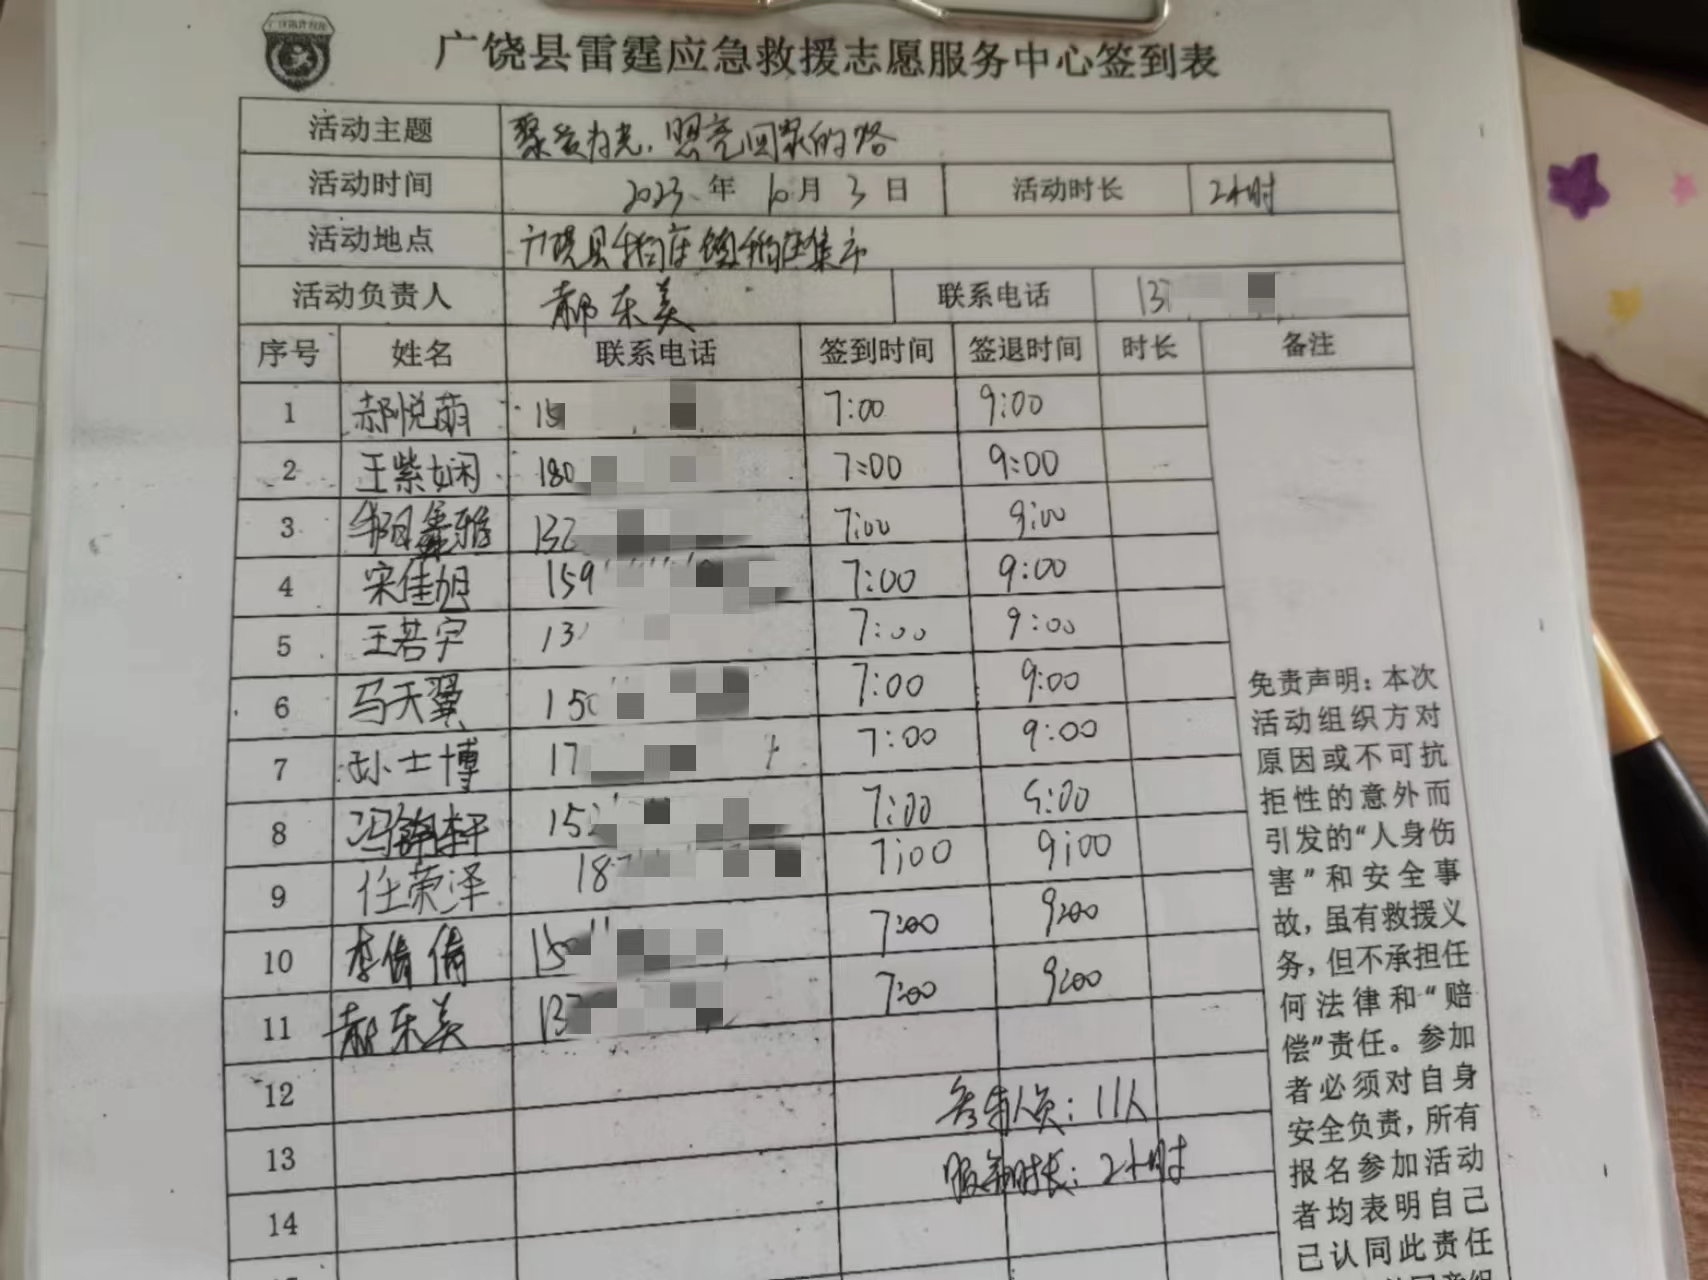 广饶县雷霆应急救援志愿服务中心签到表
活动主题 聚爱为光，照亮回家的路
活动时间 2023年10月3日 活动时长 2小时
活动地点 广饶县稻庄镇稻庄集市
活动负责人 郝东美 联系电话 137
序号 姓名 联系电话 签到时间 签退时间 时长 备注
1 郝悦萌 15 7:00 9:00
2 王紫娴 180 7:00 9:00
3 鑫雅 132 7:00 9:00
4 宋佳旭 159 7:00 9:00
5 王若宇 13 7:00 9:00
6 马天翼 150 7:00 9:00
7 孙士博 17 7:00 9:00
8 冯锦轩 152 7:00 9:00
9 任荣泽 18 7:00 9:00
10 李倩倩 15 7:00 9:00
11 郝东美 137 7:00 9:00
12 参与人员：11人
13 服务时长：2小时
14
免责声明：本次
活动组织方对
原因或不可抗
拒性的意外而
引发的“人身伤
害”和安全事
故，虽有救援义
务，但不承担任
何法律和“赔
偿”责任。参加
者必须对自身
安全负责，所有
报名参加活动
者均表明自己
已认同此责任